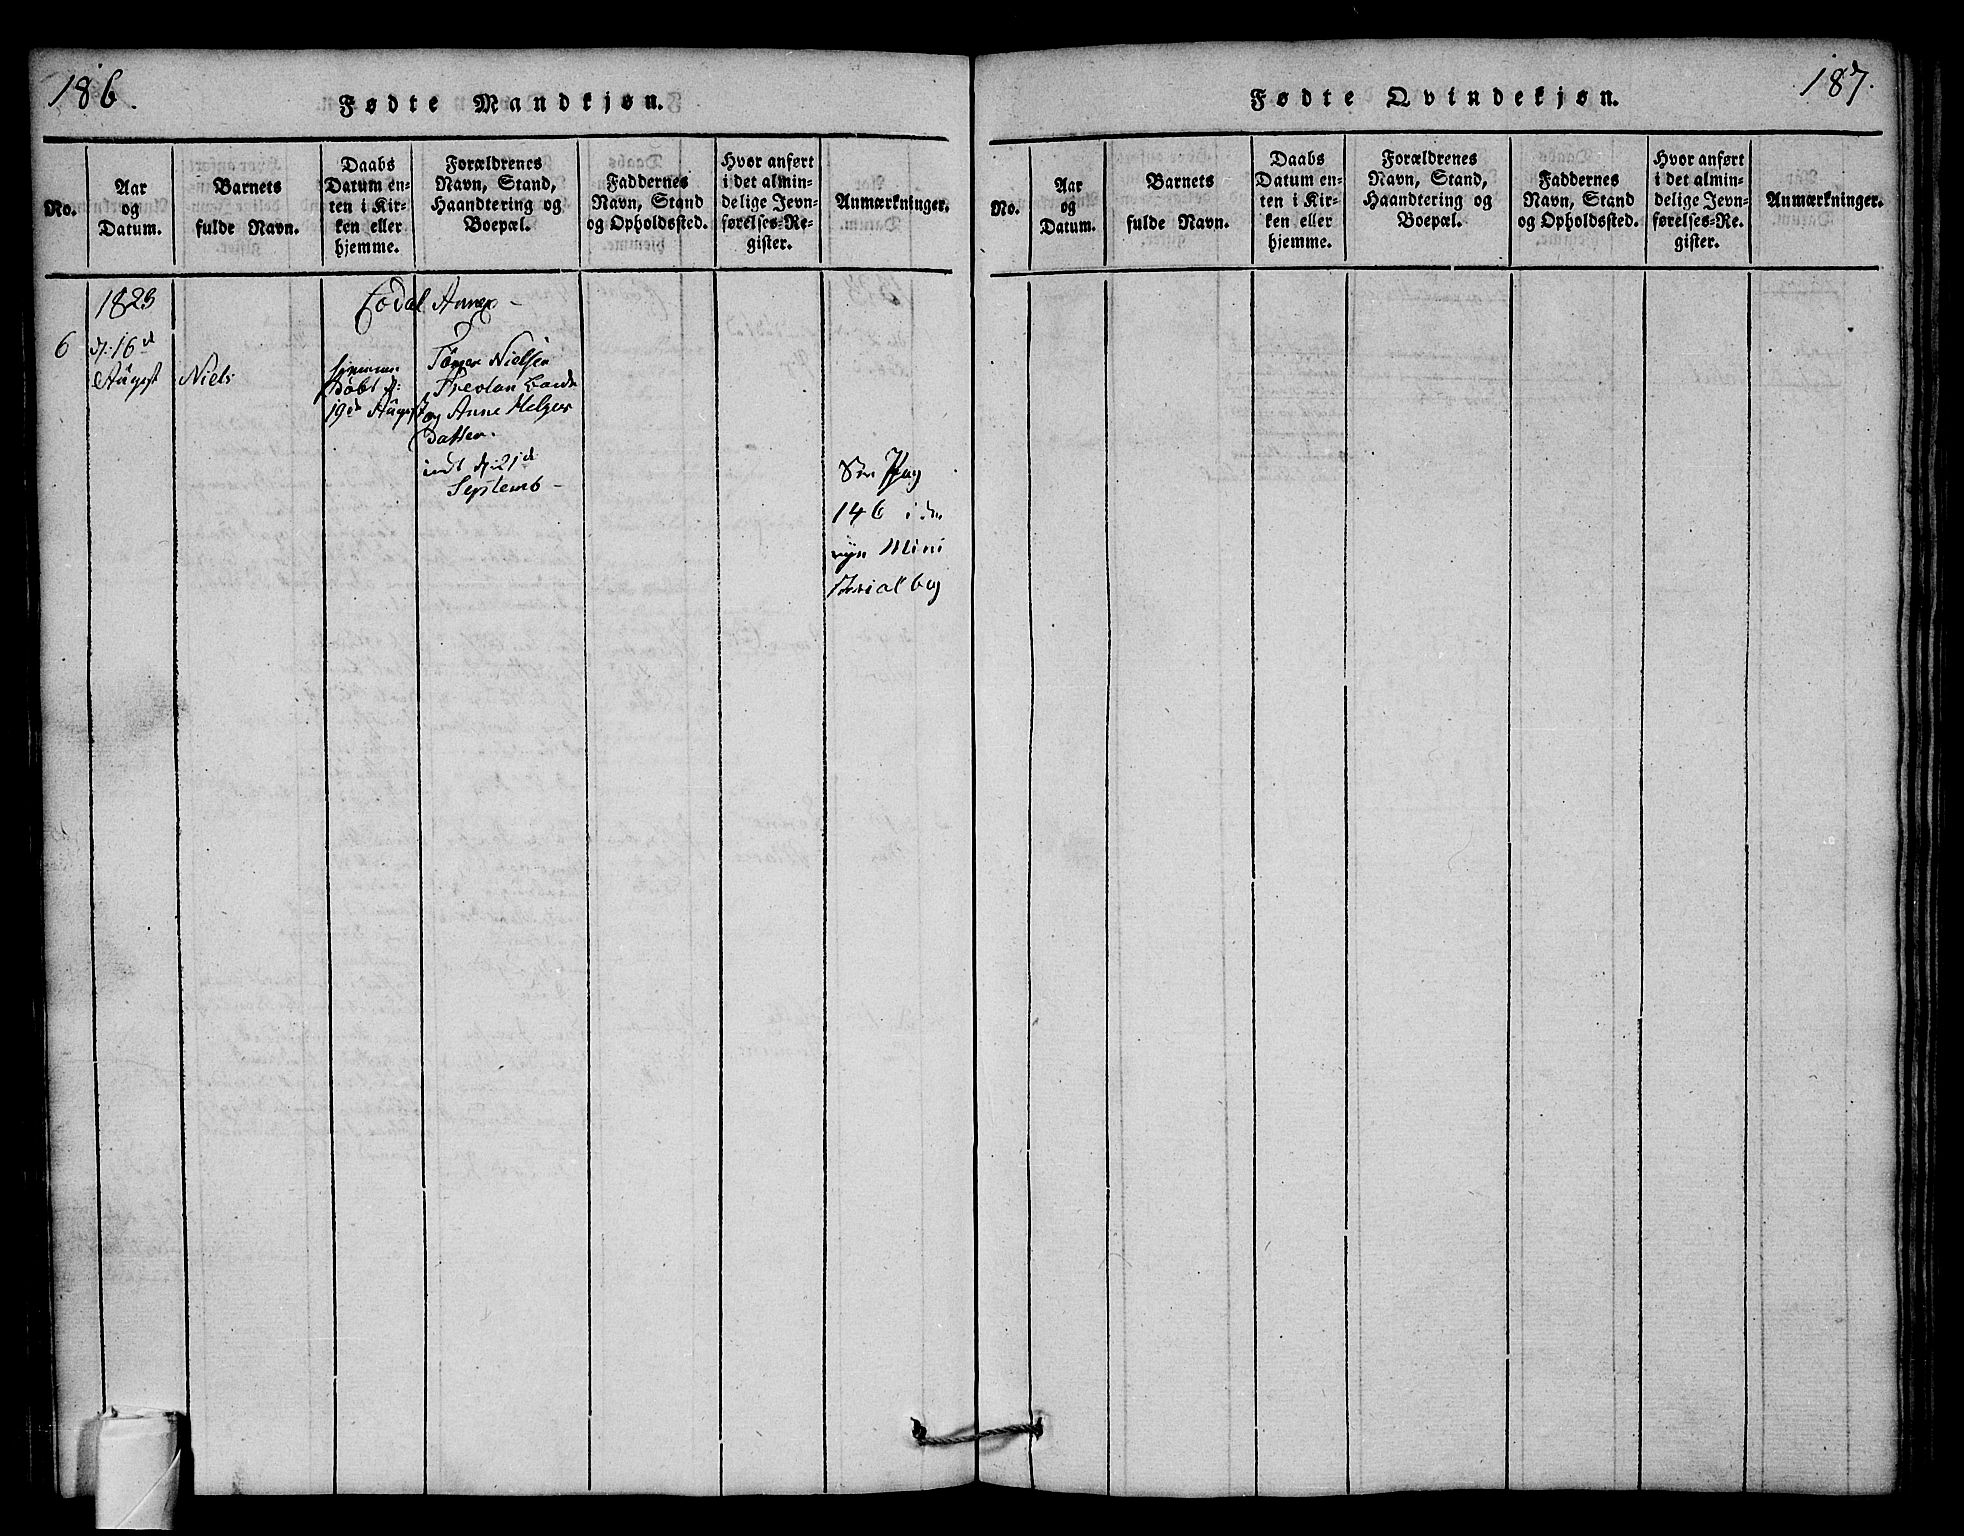 186.
Fødte Mandkjøn.
No.
Aar
og
Datum.
Barnets
fulde Navn.
Daabs
Datum en-
ten i Kir-
ken eller
hjemme.
Forældrenes
Navn, Stand,
Haandtering og
Boepæl.
Faddernes
Navn, Stand
og Opholdssted.
Hvor anført
i det almin-
delige Jevn-
førelses-Re-
gister.
Anmærkninger.
1823
Todal Annex
6
d: 16d
August
Niels
hjemme
døbt d:
19d August
Nielsen
og Anne
Datter.
indt d: 21d
Septemb
See Pag
146 i den
nye Mini
sterialbog
187.
Fødte Qvindekjøn.
No.
Aar
og
Datum.
Barnets
fulde Navn.
Daabs
Datum en-
ten i Kir-
ken eller
hjemme.
Forældrenes
Navn, Stand,
Haandtering og
Boepæl.
Faddernes
Navn, Stand
og Opholdssted.
Hvor anført
i det almin-
delige Jevn-
førelses-Re-
gister.
Anmærkninger.